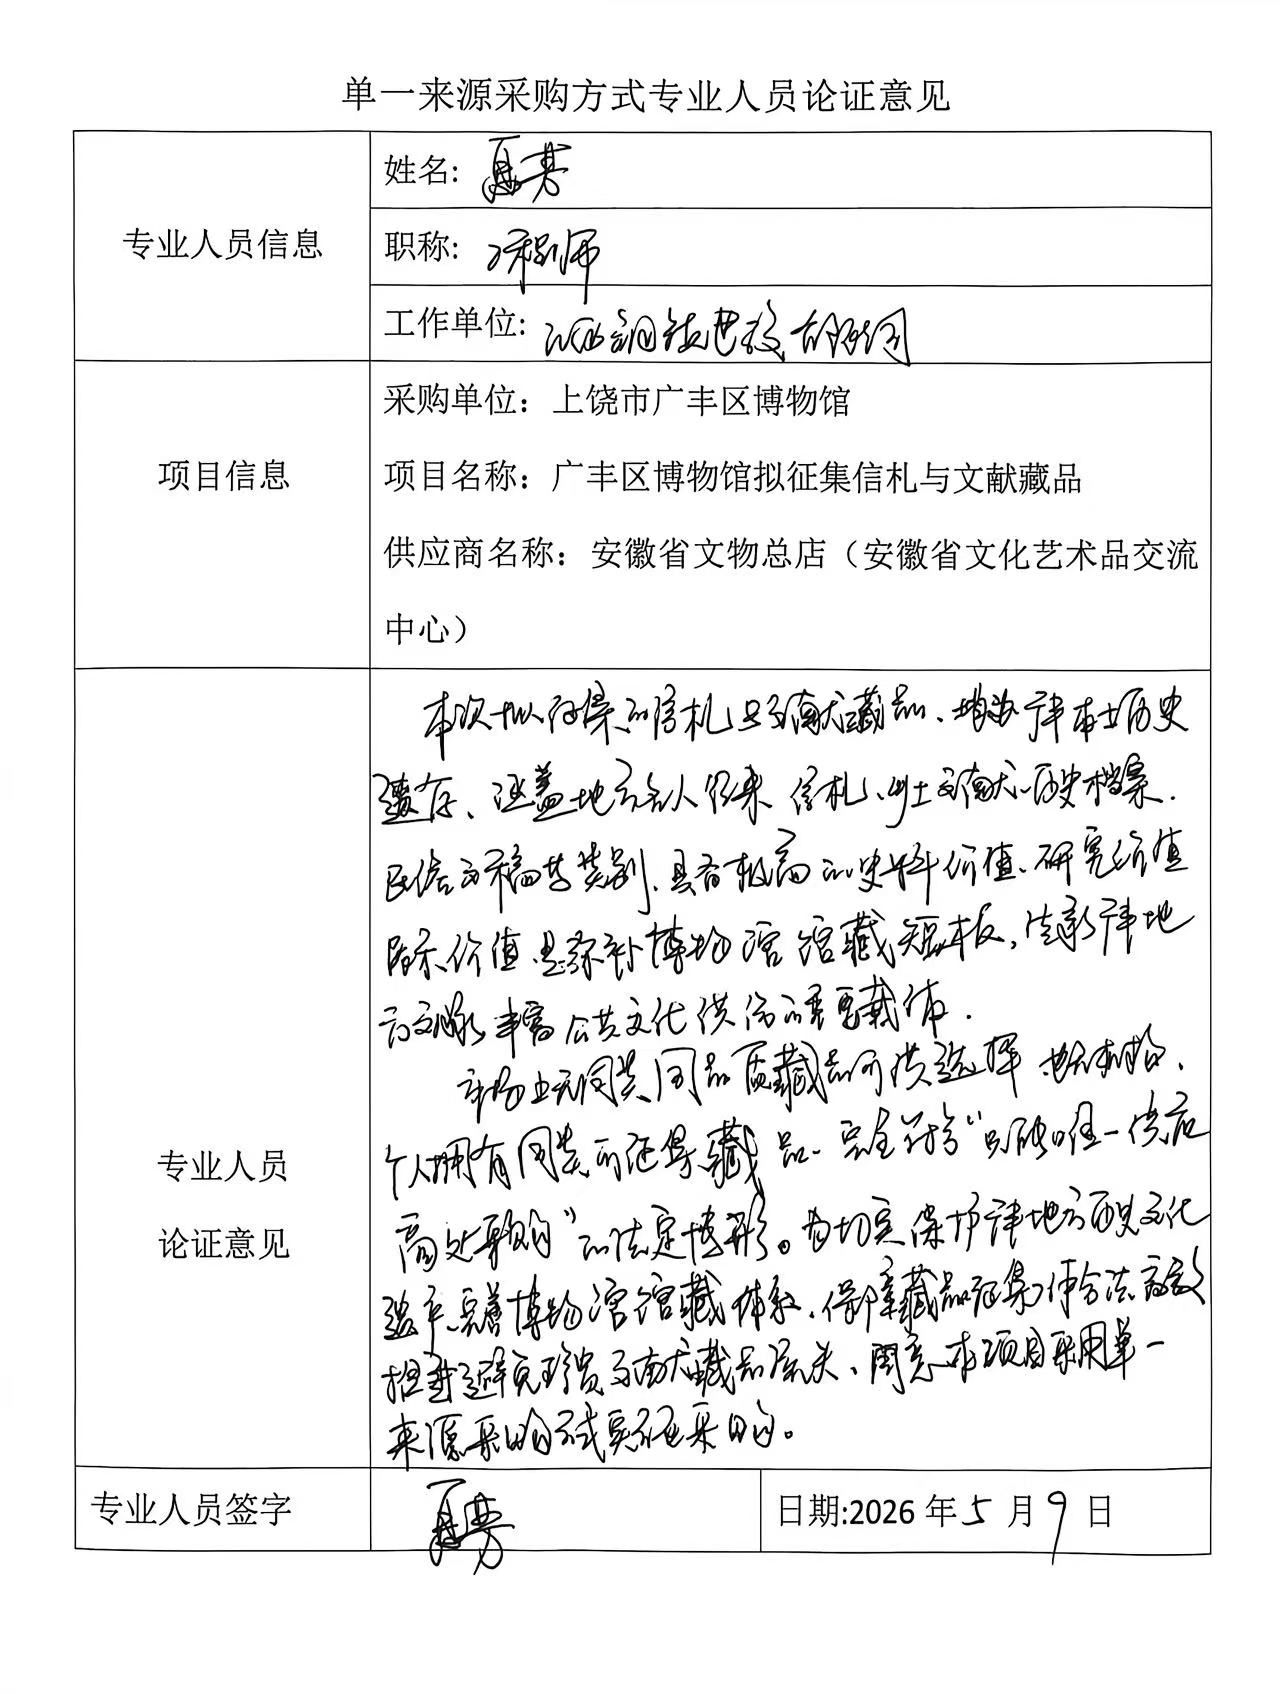 单一来源采购方式专业人员论证意见
专业人员信息
姓名:
职称: 工程师
工作单位:
项目信息
采购单位：上饶市广丰区博物馆
项目名称：广丰区博物馆拟征集信札与文献藏品
供应商名称：安徽省文物总店（安徽省文化艺术品交流
中心）
专业人员
论证意见
本次拟征集的信札与文献藏品、均为广丰本土历史
遗存、涵盖地方名人往来信札、乡土文献、历史档案、
民俗文稿等类别、具有极高的史料价值、研究价值
展示价值、是弥补博物馆馆藏短板，传承广丰地
方文脉、丰富公共文化供给的重要载体.
市场上无同类同品质藏品可供选择、其他机构、
个人拥有同类可征集藏品、完全符合“只能唯一供应
商处采购”的法定情形。为切实保护广丰地方历史文化
遗产、完善博物馆馆藏体系、保障藏品征集工作合法高效
推进避免珍贵文献藏品流失、同意本项目采用单一
来源采购方式实施采购。
专业人员签字
日期:2026 年 5 月 9 日